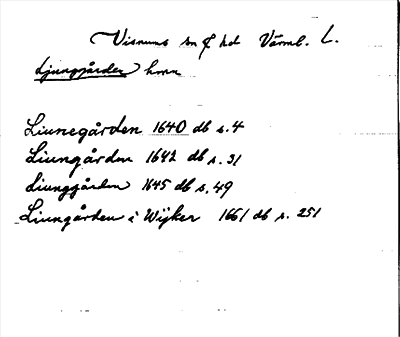 Visnums sn f hd Värml. L.
Ljunggården hmn
Liunegården 1640 db s. 4
Liungården 1642 db s. 31
Liunggården 1645 db s. 49
Liungården i Wijker 1661 db s. 251